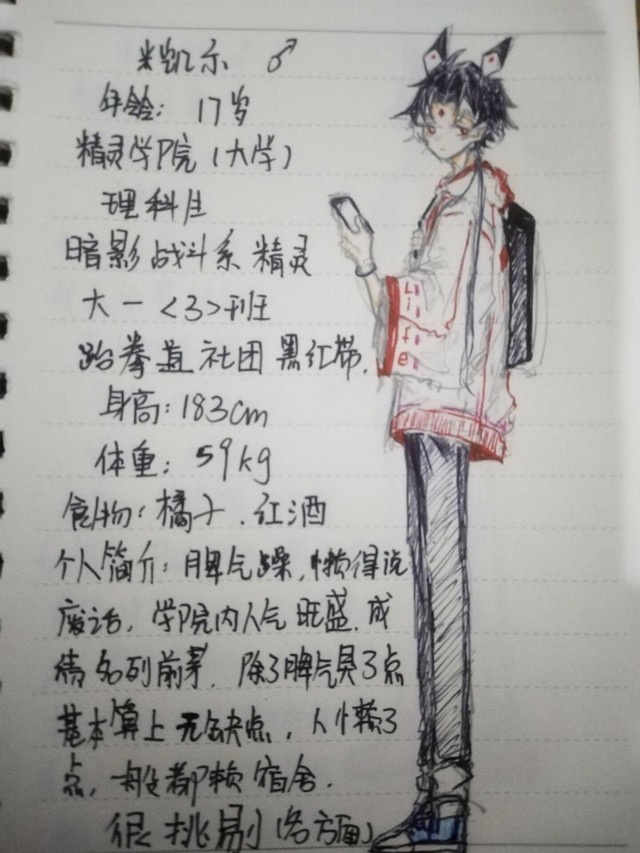 米凯尔 ♂
年龄：17岁
精灵学院（大学）
理科生
暗影战斗系精灵
大一<3>班
跆拳道社团黑红带.
身高：183cm
体重：59kg
食物：橘子.红酒
个人简介：脾气躁，懒得说
废话，学院内人气旺盛.成
绩名列前茅.除了脾气臭了点
基本算上无缺点，人懒了
点，一般都赖宿舍.
很挑剔（各方面）
Life